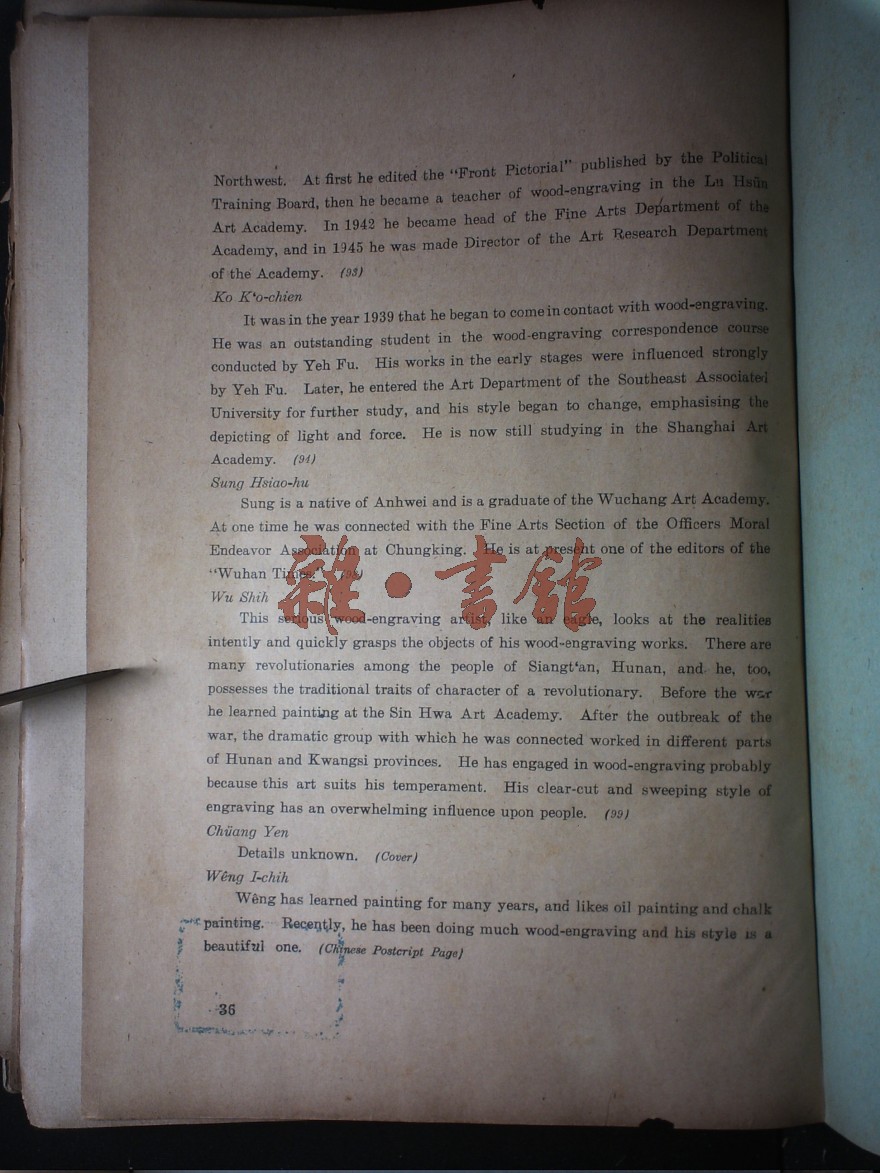 Northwest. At first he edited the "Front Pictorial" published by the Political
Training Board, then he became a teacher of wood-engraving in the Lu Hsün
Art Academy. In 1942 he became head of the Fine Arts Department of the
Academy, and in 1945 he was made Director of the Art Research Department
of the Academy. (93)
Ko K'o-chien
It was in the year 1939 that he began to come in contact with wood-engraving.
He was an outstanding student in the wood-engraving correspondence course
conducted by Yeh Fu. His works in the early stages were influenced strongly
by Yeh Fu. Later, he entered the Art Department of the Southeast Associated
University for further study, and his style began to change, emphasising the
depicting of light and force. He is now still studying in the Shanghai Art
Academy. (94)
Sung Hsiao-hu
Sung is a native of Anhwei and is a graduate of the Wuchang Art Academy.
At one time he was connected with the Fine Arts Section of the Officers Moral
Endeavor Association at Chungking. He is at present one of the editors of the
"Wuhan Times."
雜·書館
Wu Shih
This serious wood-engraving artist, like an eagle, looks at the realities
intently and quickly grasps the objects of his wood-engraving works. There are
many revolutionaries among the people of Siangt'an, Hunan, and he, too,
possesses the traditional traits of character of a revolutionary. Before the war
he learned painting at the Sin Hwa Art Academy. After the outbreak of the
war, the dramatic group with which he was connected worked in different parts
of Hunan and Kwangsi provinces. He has engaged in wood-engraving probably
because this art suits his temperament. His clear-cut and sweeping style of
engraving has an overwhelming influence upon people. (99)
Chüang Yen
Details unknown. (Cover)
Wêng I-chih
Wêng has learned painting for many years, and likes oil painting and chalk
painting. Recently, he has been doing much wood-engraving and his style is a
beautiful one. (Chinese Postcript Page)
36